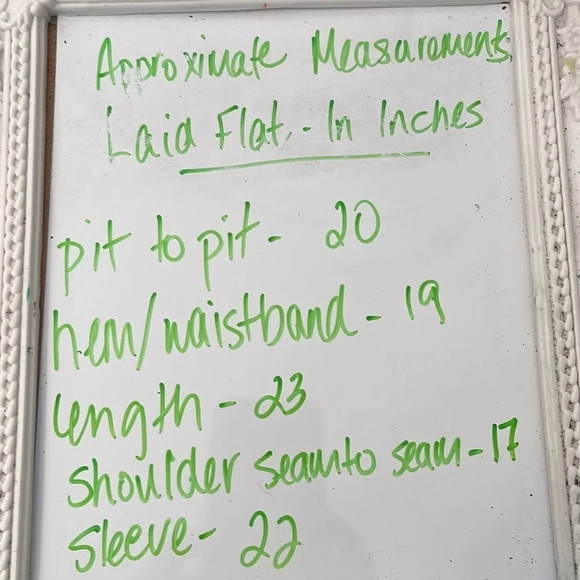 Approximate Measurements
Laid Flat - In Inches
pit to pit - 20
hem/waistband - 19
length - 23
shoulder seam to seam - 17
sleeve - 22